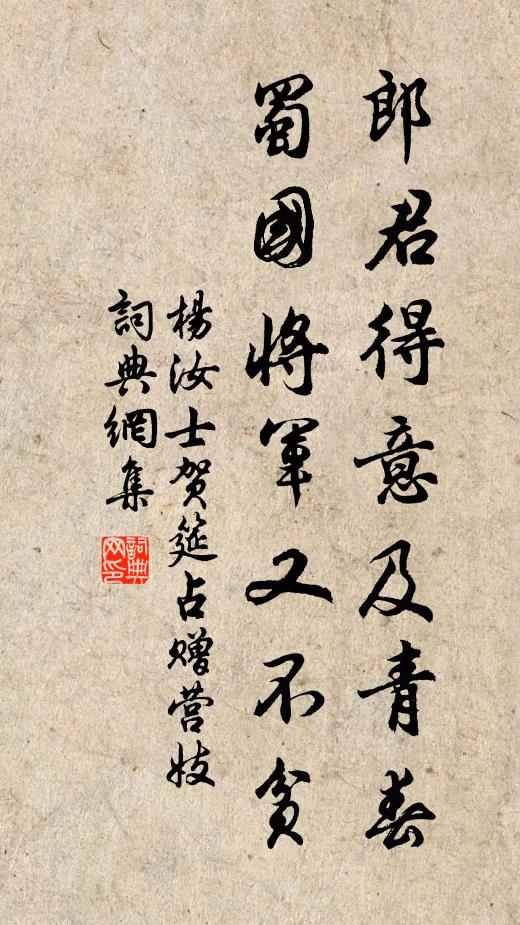 郎君得意及青春
蜀國將軍又不貧
楊汝士贺筵占赠营妓
詞典網集
詞典网印